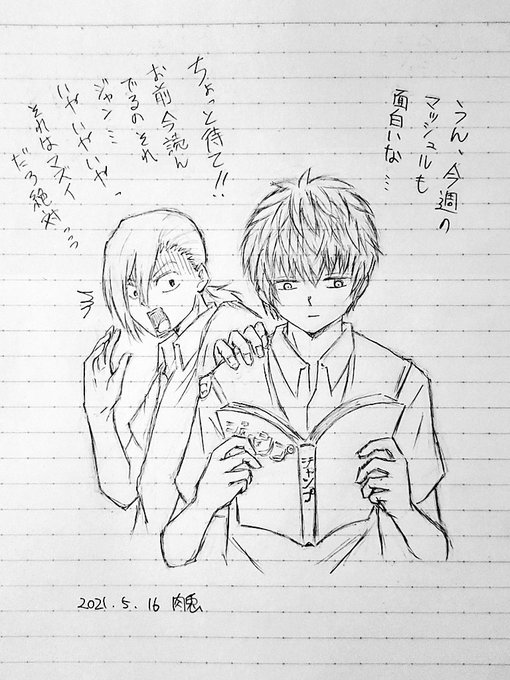 うん、今週の
マッシュルも
面白いな…
ちょっと待て!!
お前今読ん
でるのそれ
ジャン…
いやいやいやっ
それはマズイ
だろ絶対
ジャンプ
2021.5.16 肉兎